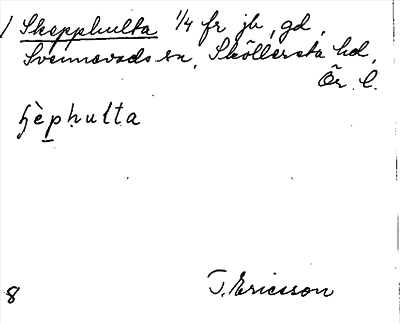 / Skepphulta 1/4 fr jb, gd,
Svennevads sn, Sköllersta hd,
Ör. l.
ɧèp̱hulta
8 T. Ericsson